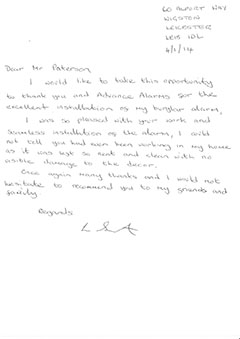 60 August Way
Wigston
Leicester
LE18 1DL
4/1/14
Dear Mr Paterson,
I would like to take this opportunity
to thank you and Advance Alarms for the
excellent installation of my burglar alarm,
I was so pleased with your work and
seamless installation of the alarms, I could
not tell you had even been working in my house
as it was left so neat and clean with no
visible damage to the decor.
Once again many thanks and I would not
hesitate to recommend you to my friends and
family
Regards